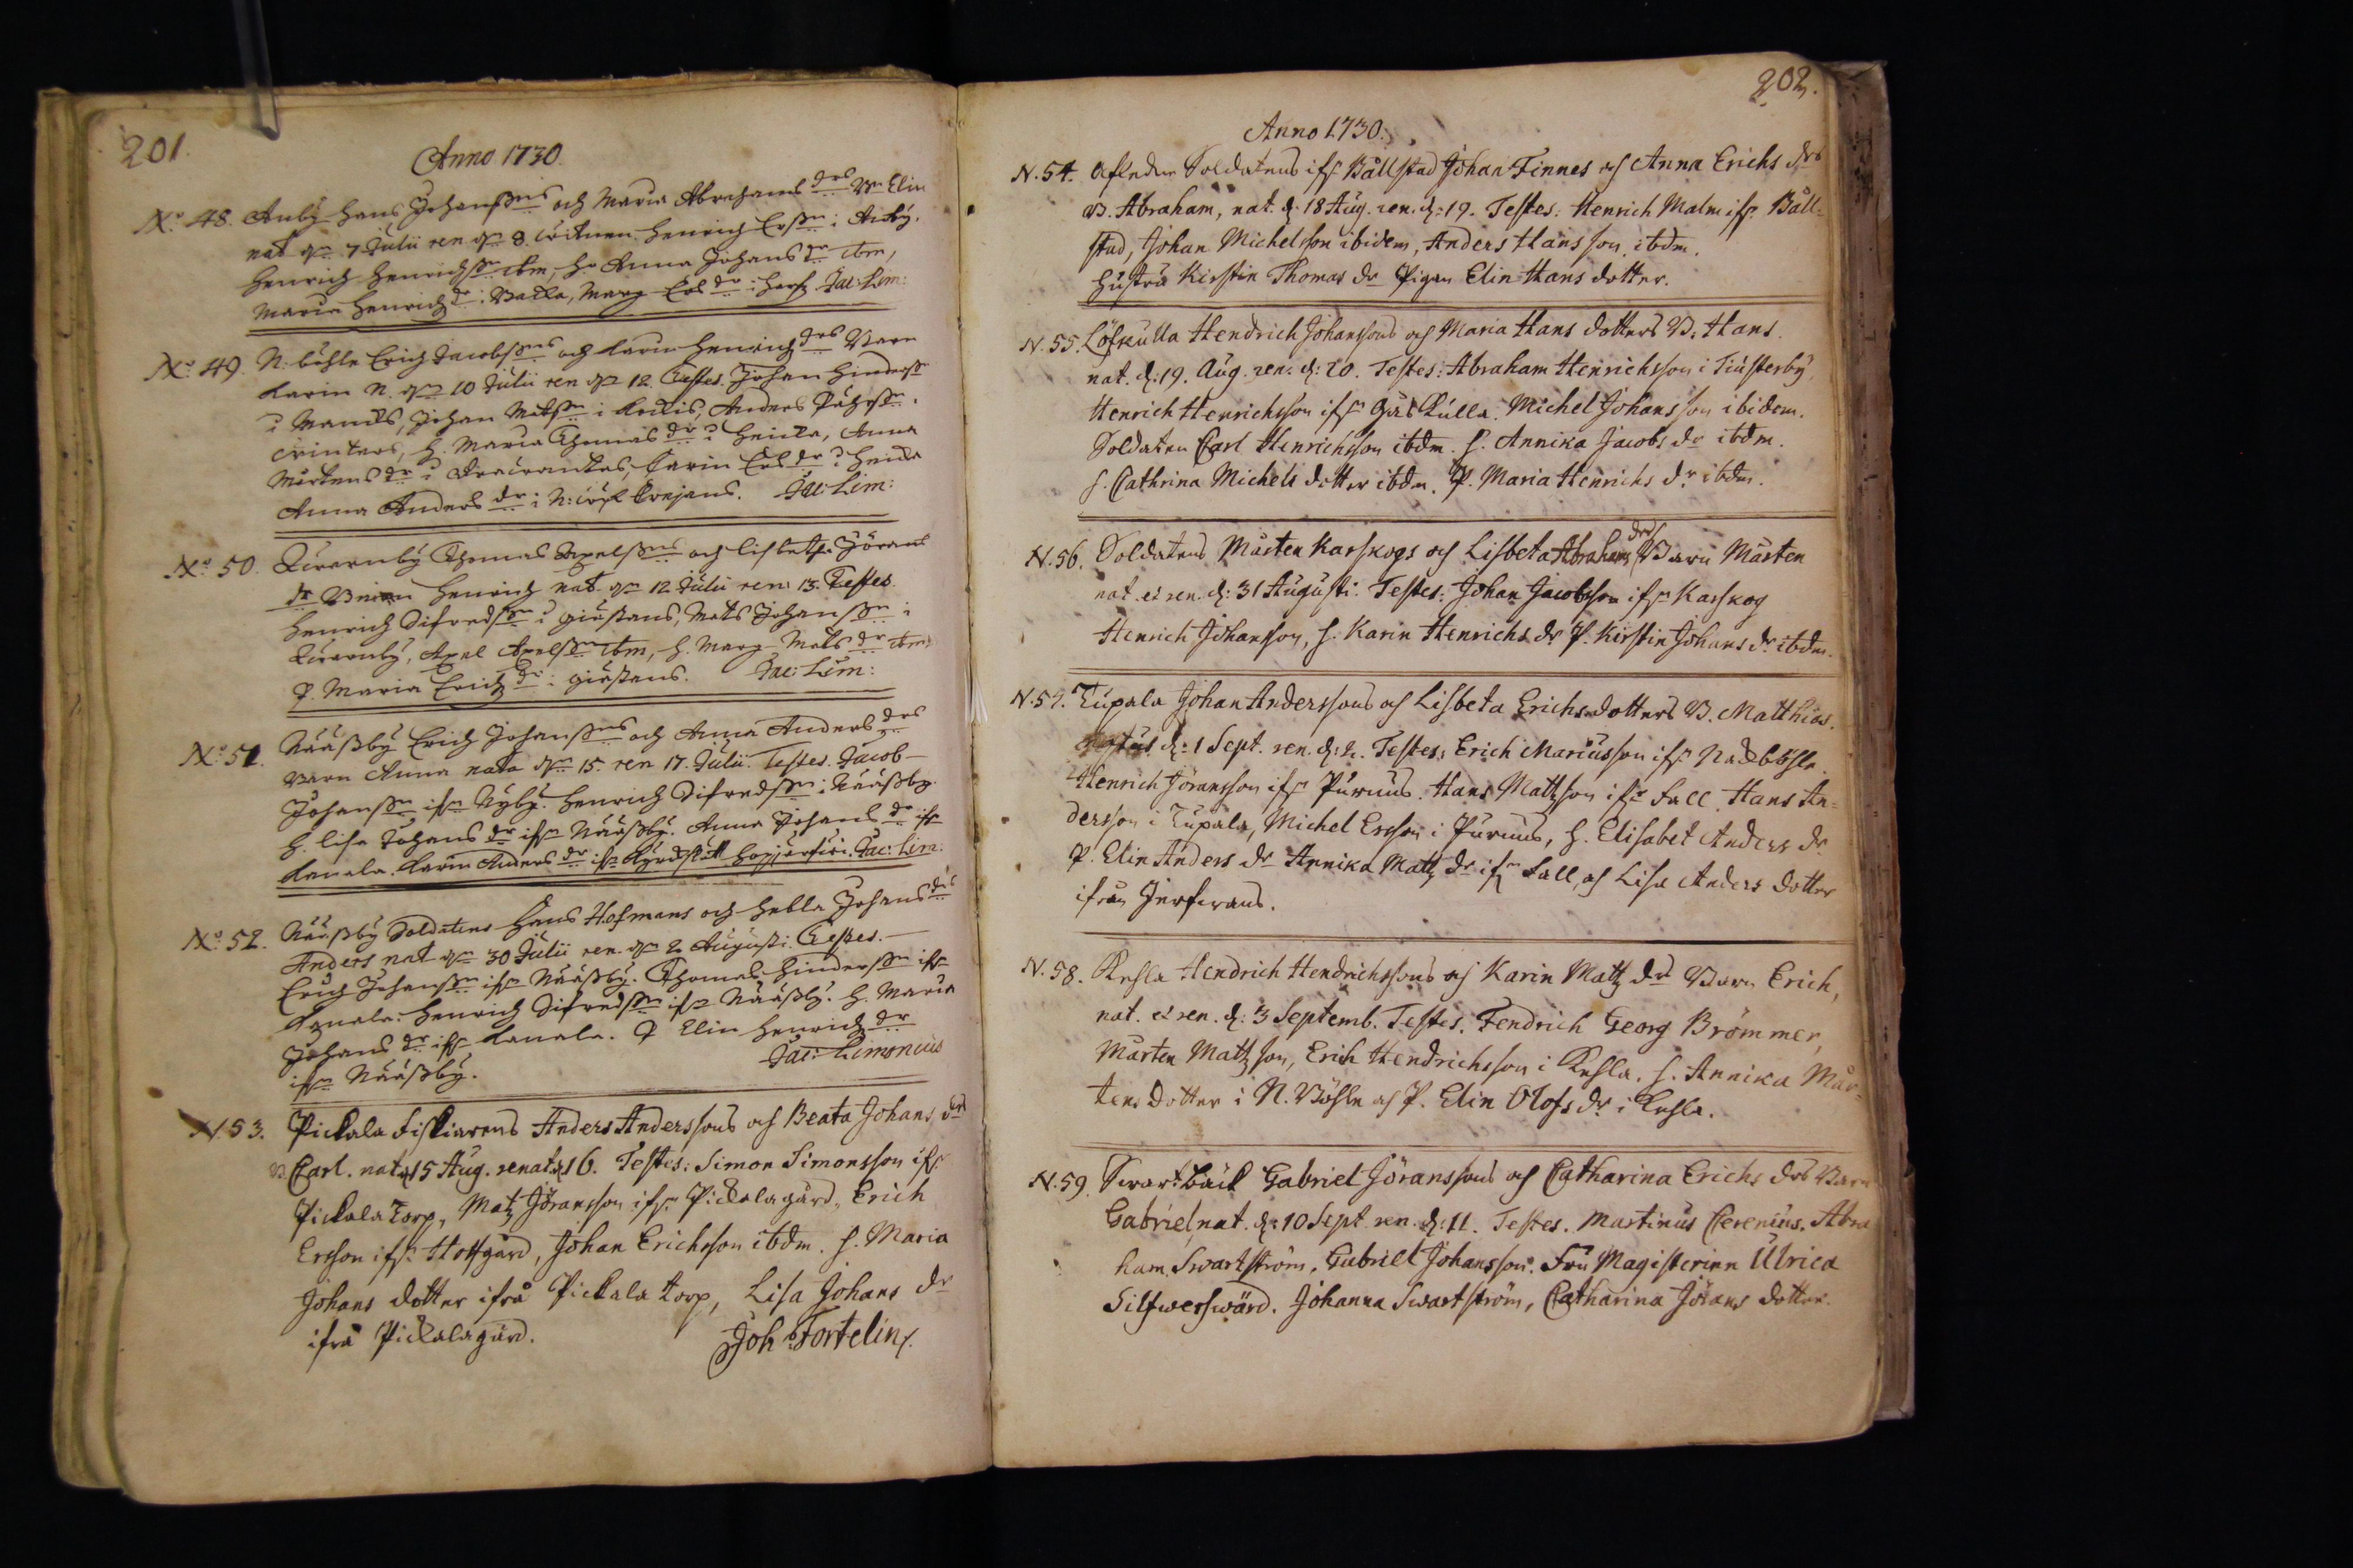 201.
Anno 1730.
No. 48. Anby Hans Johanssons och Maria Abrahams drs Bn Elin
nat dn 7 Julii ren dn 8. witnen Henrich Erssn i Anby.
Henrich Henrichssn ibm, H. Anna Johans dr ibm,
Maria Henrichs dr i Backa, Marg Ers dr i Jac: Lim:
No. 49. N. böhle Erich Jacobssns och Karin Henrichs drs Barn
Karin N. dn 10 Julii ren dn 12. Testes. Johan Hinderssn
i Johan Matssn i Anders
H. Maria Thomas dr i Heicka, Anna
Mårtens dr i Karin Ers dr i Heicka
Anna Anders dr i N: Jac: Lim:
No. 50. Qwarnby Thomas Axelssns och Lisbetha Jörans
dr Barn Henrich nat dn 12 Julii ren 13. Testes
Henrich Sifredssn i giästans, Mats Johanssn i
Qwarnby, Axel Axelssn ibm, H. Marg Mats dr ibm,
P. Maria Erichs dr i giästans. Jac: Lim:
No. 51. Nääsby Erich Johanssns och Anna Anders drs
Barn Anna nata dn 15. ren 17. Julii. Testes. Jacob
Johanssn ifrn Nyby. Henrich Sifredssn i Nääsby.
H. Lisa Johans dr ifrn Nääsby. Anna Johans dr ifrn
Kanala. Karin Anders dr ifrn Jac: Lim:
No. 52. Nääsby Soldatens Hans Hofmans och Hebla Johans drs
Anders nat dn 30 Julii ren. dn 2 Augusti. Testes.
Erich Johanssn ifrn Nääsby. Thomas Hinderssn ifrn
Kanala. Henrich Sifredssn ifrn Nääsby. H. Maria
Johans dr ifrn Kanala. P Elin Henrichs dr
ifrn Nääsby. Jac: Limonius
N. 53. Pickala Fiskiarens Anders Anderssons och Beata Johans drs
B. Carl. nat. d 15 Aug. renat. d 16. Testes: Simon Simonsson ifr.
Pickala Torp, Matz Jöransson ifr. Pickalagård, Erich
Ersson ifr. Hoffgård, Johan Erichsson ibdm. H. Maria
Johans dotter ifrå Pickala torp, Lisa Johans dr
ifrå Pickalagård. Joh: Fortelin.
202.
Anno 1730.
N. 54. Afledne Soldatens ifr. Bållstad Johan Finnes och Anna Erichs drs
B. Abraham, nat. d. 18 Aug. ren. d: 19. Testes: Henrich Malm ifr. Båll-
stad, Johan Michelsson ibidem, Anders Hansson ibdm.
hustru Kirstin Thomas dr Pigan Elin Hans dotter.
N. 55. Löfkulla Hendrich Johanssons och Maria Hans dotters B. Hans.
nat. d: 19. Aug. ren. d: 20. Testes: Abraham Henrichsson i Tiusterby,
Henrich Henrichsson ifrn Michel Johansson ibidem.
Soldaten Carl Henrichsson ibdm. H. Annika Jacobs dr ibdm.
H. Cathrina Michels dotter ibdm. P. Maria Henrichs dr ibdm.
N. 56. Soldatens Mårten Karskogs och Lisbeta Abrahams drs Barn Mårten
nat. et ren. d: 31 Augusti. Testes: Johan Jacobsson ifrn Karskog
Henrich Johansson, H. Karin Henrichs dr P. Kirstin Johans dr ibdm.
N. 57. Tupala Johan Anderssons och Lisbeta Erichsdotters B. Matthias.
d: 1 Sept. ren. d: 2. Testes: Erich Mariusson ifr Nadbböhle.
Henrich Jöransson ifr Purnus. Hans Mattsson ifr Fall. Hans An-
dersson i Tupala, Michel Ersson i Purnus, H. Elisabet Anders dr
P. Elin Anders dr Annika Matz dr ifrn Fall, och Lisa Anders dotter
ifrån Jerferans.
N. 58. Kesla Hendrich Hendrichssons och Karin Matz drs Barn Erich,
nat. et ren. d: 3 Septemb. Testes. Fendrich Georg Brömmer,
Mårten Mattsson, Erich Hendrichsson i Kesla. H. Annika Mår-
tens dotter i N. Böhle och P. Elin Olofs dr i Kesla.
N. 59. Swartbäck Gabriel Jöranssons och Catharina Erichs drs Barn
Gabriel, nat. d: 10 Sept. ren. d: 11. Testes. Martinus Cerenius. Abra
ham Swartström, Gabriel Johansson. Fru Magisterinn Ulrica
Silfwerswärd. Johanna Swartström, Catharina Jörans dotter.